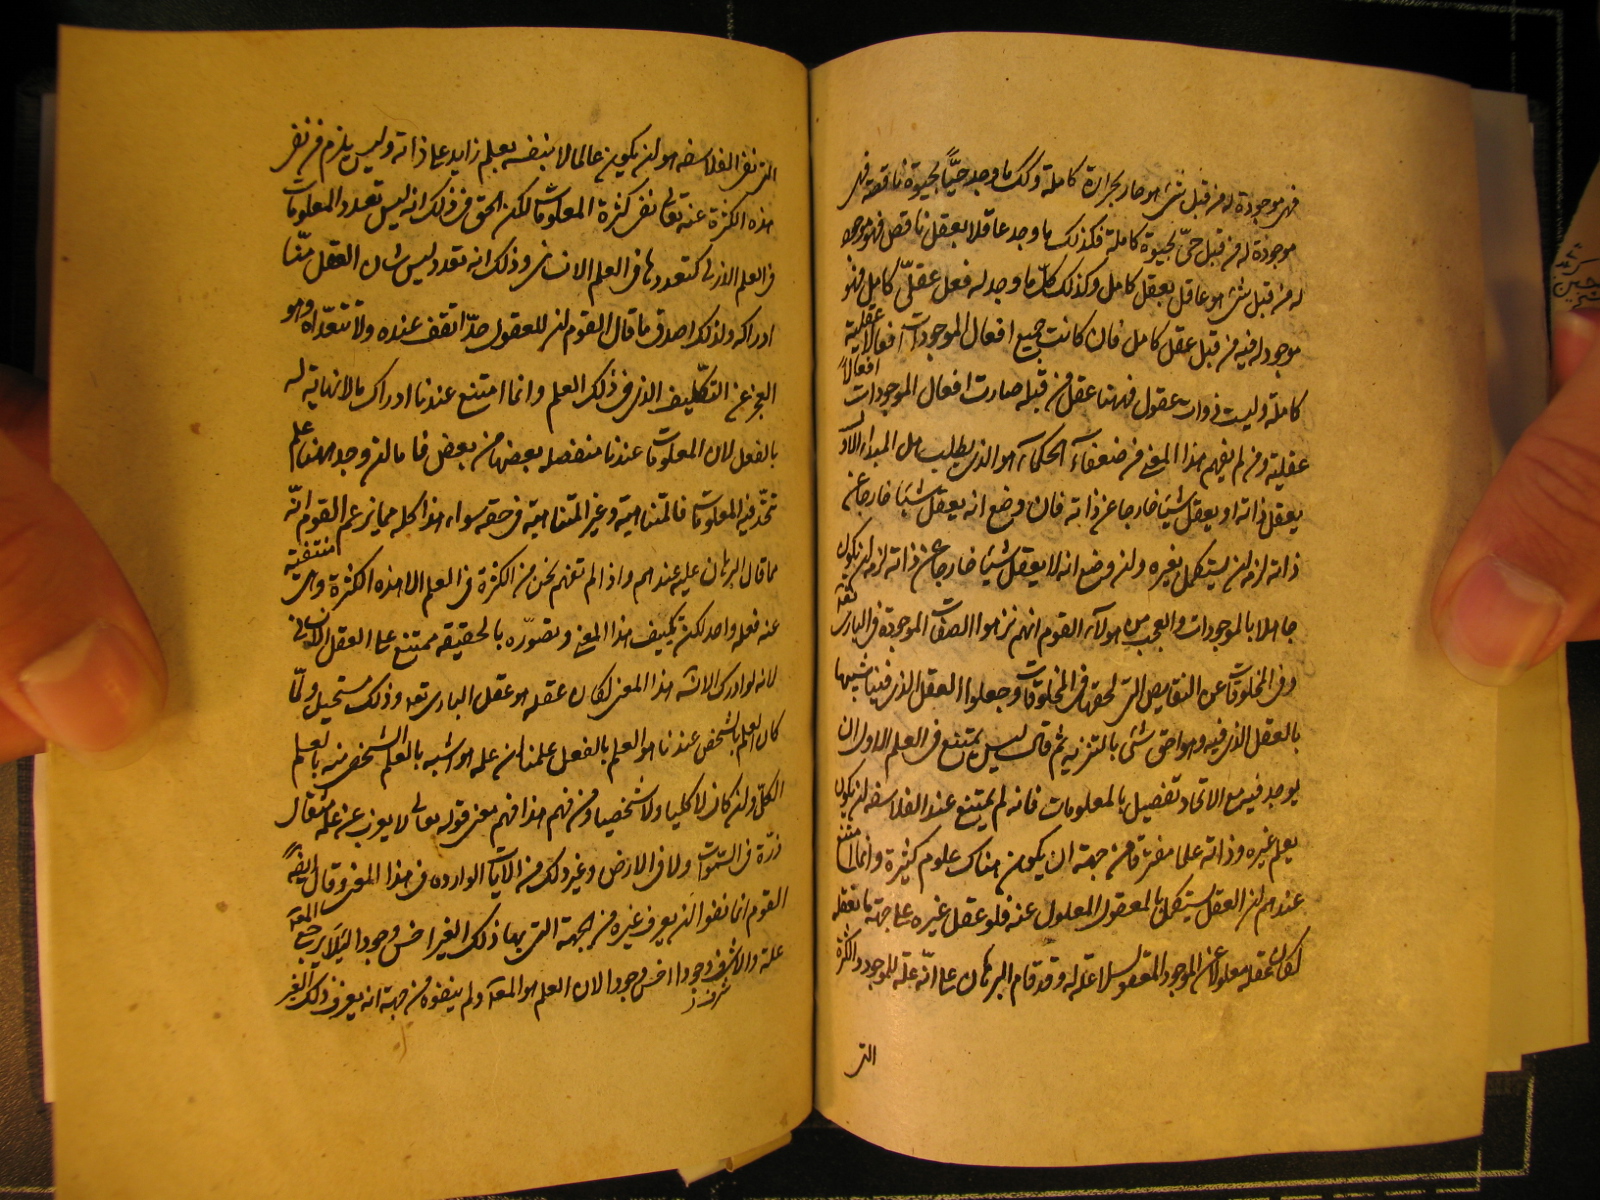 فهى موجودة له من قبل شئ هو حار بحرارة كاملة وكذلك ما وجد حيّاً بحيوة ناقصة فهى
موجودة له من قبل حىّ بحيوة كاملة فكذلك ما وجد عاقلا بعقل ناقص فهو موجود
له من قبل شئ هو عاقل بعقل كامل وكذلك كلّ ما وجد له فعل عقلىّ كامل فهو
موجود له فيه من قبل عقل كامل فان كانت جميع افعال الموجودات افعالا عقلية
كاملة وليست ذوات عقول فههنا عقل من قبله صارت افعال الموجودات افعالاً
عقلية ومن لم يفهم هذا المعنى من ضعفاء الحكماء هو الذى يطلب هل المبدا الاول
يعقل ذاته او يعقل شيئا خارجا عن ذاته فان وضع انه يعقل شيئا خارجا عن
ذاته لزمه ان يستكمل بغيره وان وضع انه لا يعقل شيئا خارجا عن ذاته لزم ان يكون
جاهلا بالموجودات والعجب من هولاء القوم انهم نزهوا الصفات الموجودة فى البارى تعه
وفى المخلوقات عن النقايص التى لحقتها فى المخلوقات وجعلوا العقل الذى فينا شبيها
بالعقل الذى فيه وهو احق شئ بالتنزيه ثم قال ليس يمتنع فى العلم الاول ان
يوجد فيه مع الاتحاد تفصيل بالمعلومات فانه لم يمتنع عند الفلاسفه ان يكون
يعلم غيره وذاته علما مفترقا من جهة ان يكون هناك علوم كثيرة وانما امتنع
عندهم ان العقل يستكمل بالمعقول المعلول عنه فلو عقل غيره على جهة ما نعقله
لكان عقله معلولا عن الموجود المعقول لا علة له وقد قام البرهان على انّه علّة للموجود والكثرة
التى
التى نفى الفلاسفه هو ان يكون عالما لا بنفسه بعلم زايد على ذاته وليس يلزم من نفى
هذه الكثرة عنه تعالى نفى كثرة المعلومات لكن الحق فى ذلك انه ليس تعدد المعلومات
فى العلم الازلى كتعددها فى العلم الانسانى وذلك انه تعدد ليس شان العقل منّا
ادراكه ولذلك اصدق ما قال القوم ان للعقول حدّا تقف عنده ولا تتعدّاه وهو
العجز عن التكييف الذى فى ذلك العلم وانما امتنع عندنا ادراك ما لا نهاية له
بالفعل لان المعلومات عندنا منفصله بعضها من بعض فاما ان وجد ههنا علم
تتحّد فيه المعلومات فالمتناهية وغير المتناهية فى حقه سواء هذا كله مما يزعم القوم انّه
مما قال البرهان عليه عندهم واذا لم نفهم نحن من الكثرة فى العلم الا هذه الكثرة وهى منتفية
عنه فعلمه واحد لكن تكييف هذا المعنى وتصوّره بالحقيقه ممتنع على العقل الانسانى
لانه لو ادرك الانسان هذا المعنى لكان عقله هو عقل البارى تعه وذلك مستحيل ولمّا
كان العلم بالشخص عندنا هو العلم بالفعل علمنا ان علمه هو اشبه بالعلم الشخصى منه بالعلم
الكلّى وان كان لا كليا ولا شخصيا ومن فهم هذا فهم معنى قوله تعالى لا يعزب عن علمه مثقال
ذرّة فى السّموات ولا فى الارض وغير ذلك من الايات الوارده فى هذا المعنى وقال ايضاً
القوم انما نفوا ان يعرف غيره من الجهة التى بها ذلك الغير اخس وجودا لئلا يرجع المعه
علة والاشرف وجودا اخس وجودا لان العلم هو المعه ولم ينفوه من جهة انه يعرف ذلك الغير